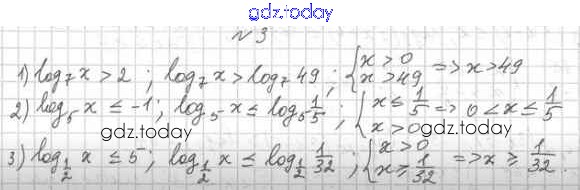 gdz.today
№3
1) log₇ x > 2 ; log₇ x > log₇ 49 ; { x > 0 x > 49 => x > 49
2) log₅ x ≤ -1 ; log₅ x ≤ log₅ 1/5 ; { x ≤ 1/5 x > 0 => 0 < x ≤ 1/5
gdz.today gdz.today
3) log_{1/2} x ≤ 5 ; log_{1/2} x ≤ log_{1/2} 1/32 ; { x > 0 x ≥ 1/32 => x ≥ 1/32.
gdz.today